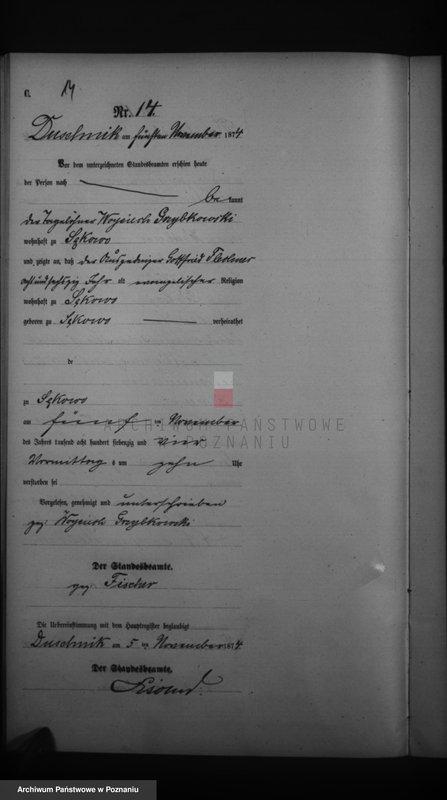 C. 14
Nr. 14.
Duschnik am fünften November 1874
Vor dem unterzeichneten Standesbeamten erschien heute
der Person nach
bekannt
der Tagelöhner Woyciech Grzybkowski
wohnhaft zu Sękowo
und zeigte an, daß der Ausgedinger Gottfried
acht und sechszig Jahr alt evangelischer Religion
wohnhaft zu Sękowo
geboren zu Sękowo verheirathet
de
zu Sękowo
am fünf ten November
des Jahres tausend acht hundert siebenzig und vier
Vormittag s um zehn Uhr
verstorben sei
Vorgelesen, genehmigt und unterschrieben
gez. Woyciech Grzybkowski
Der Standesbeamte.
gez. Fischer
Die Uebereinstimmung mit dem Hauptregister beglaubigt
Duschnik am 5 ten November 1874
Der Standesbeamte.
ARCHIWUM PAŃSTWOWE
W POZNANIU
Archiwum Państwowe w Poznaniu